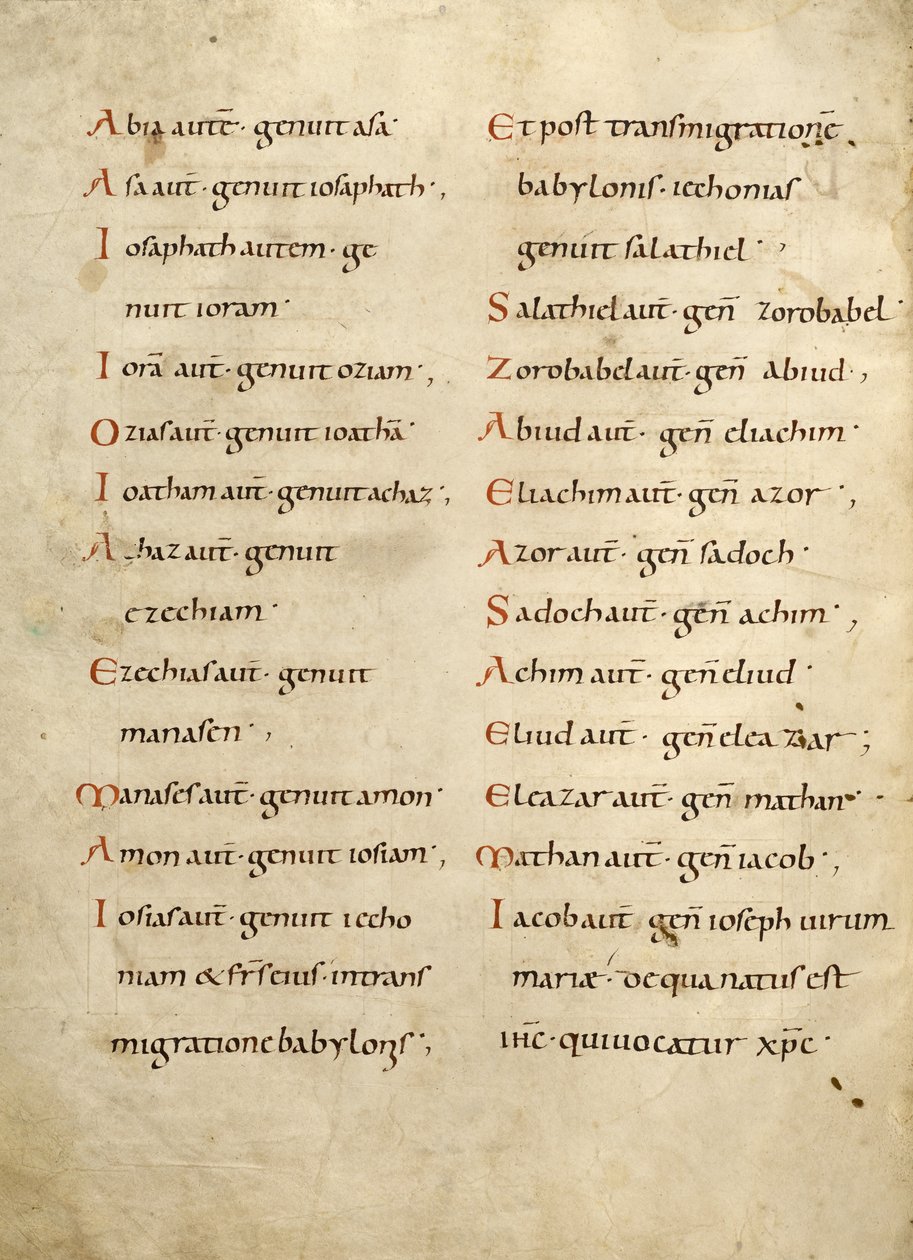 Abia autē · genuit asa ·
Asa aut̄ · genuit iosaphath ·,
Iosaphath autem · ge
nuit ioram ·
Iorā aut̄ · genuit oziam ·,
Ozias aut̄ · genuit ioathā ·
Ioatham aut̄ · genuit achaz ·,
Achaz aut̄ · genuit
ezechiam ·
Ezechias aut̄ · genuit
manasen · ,
Manases aut̄ · genuit amon ·
Amon aut̄ · genuit iosiam ·,
Iosias aut̄ · genuit iecho
niam & fr̄s eius · in trans
migratione babylonis ·,
Et post transmigrationē
babylonis · iechonias
genuit salathiel · ,
Salathiel aut̄ · geñ zorobabel ·
Zorobabel aut̄ · geñ abiud · ,
Abiud aut̄ · geñ eliachim ·
Eliachim aut̄ · geñ azor · ,
Azor aut̄ · geñ sadoch ·
Sadoch aut̄ · geñ achim · ,
Achim aut̄ · geñ eliud ·
Eliud aut̄ · geñ eleazar ;
Eleazar aut̄ · geñ mathan ·
Mathan aut̄ · geñ iacob · ,
Iacob aut̄ geñ ioseph uirum
mariæ · de qua natus est
ih̄c · qui uocatur xp̄c ·